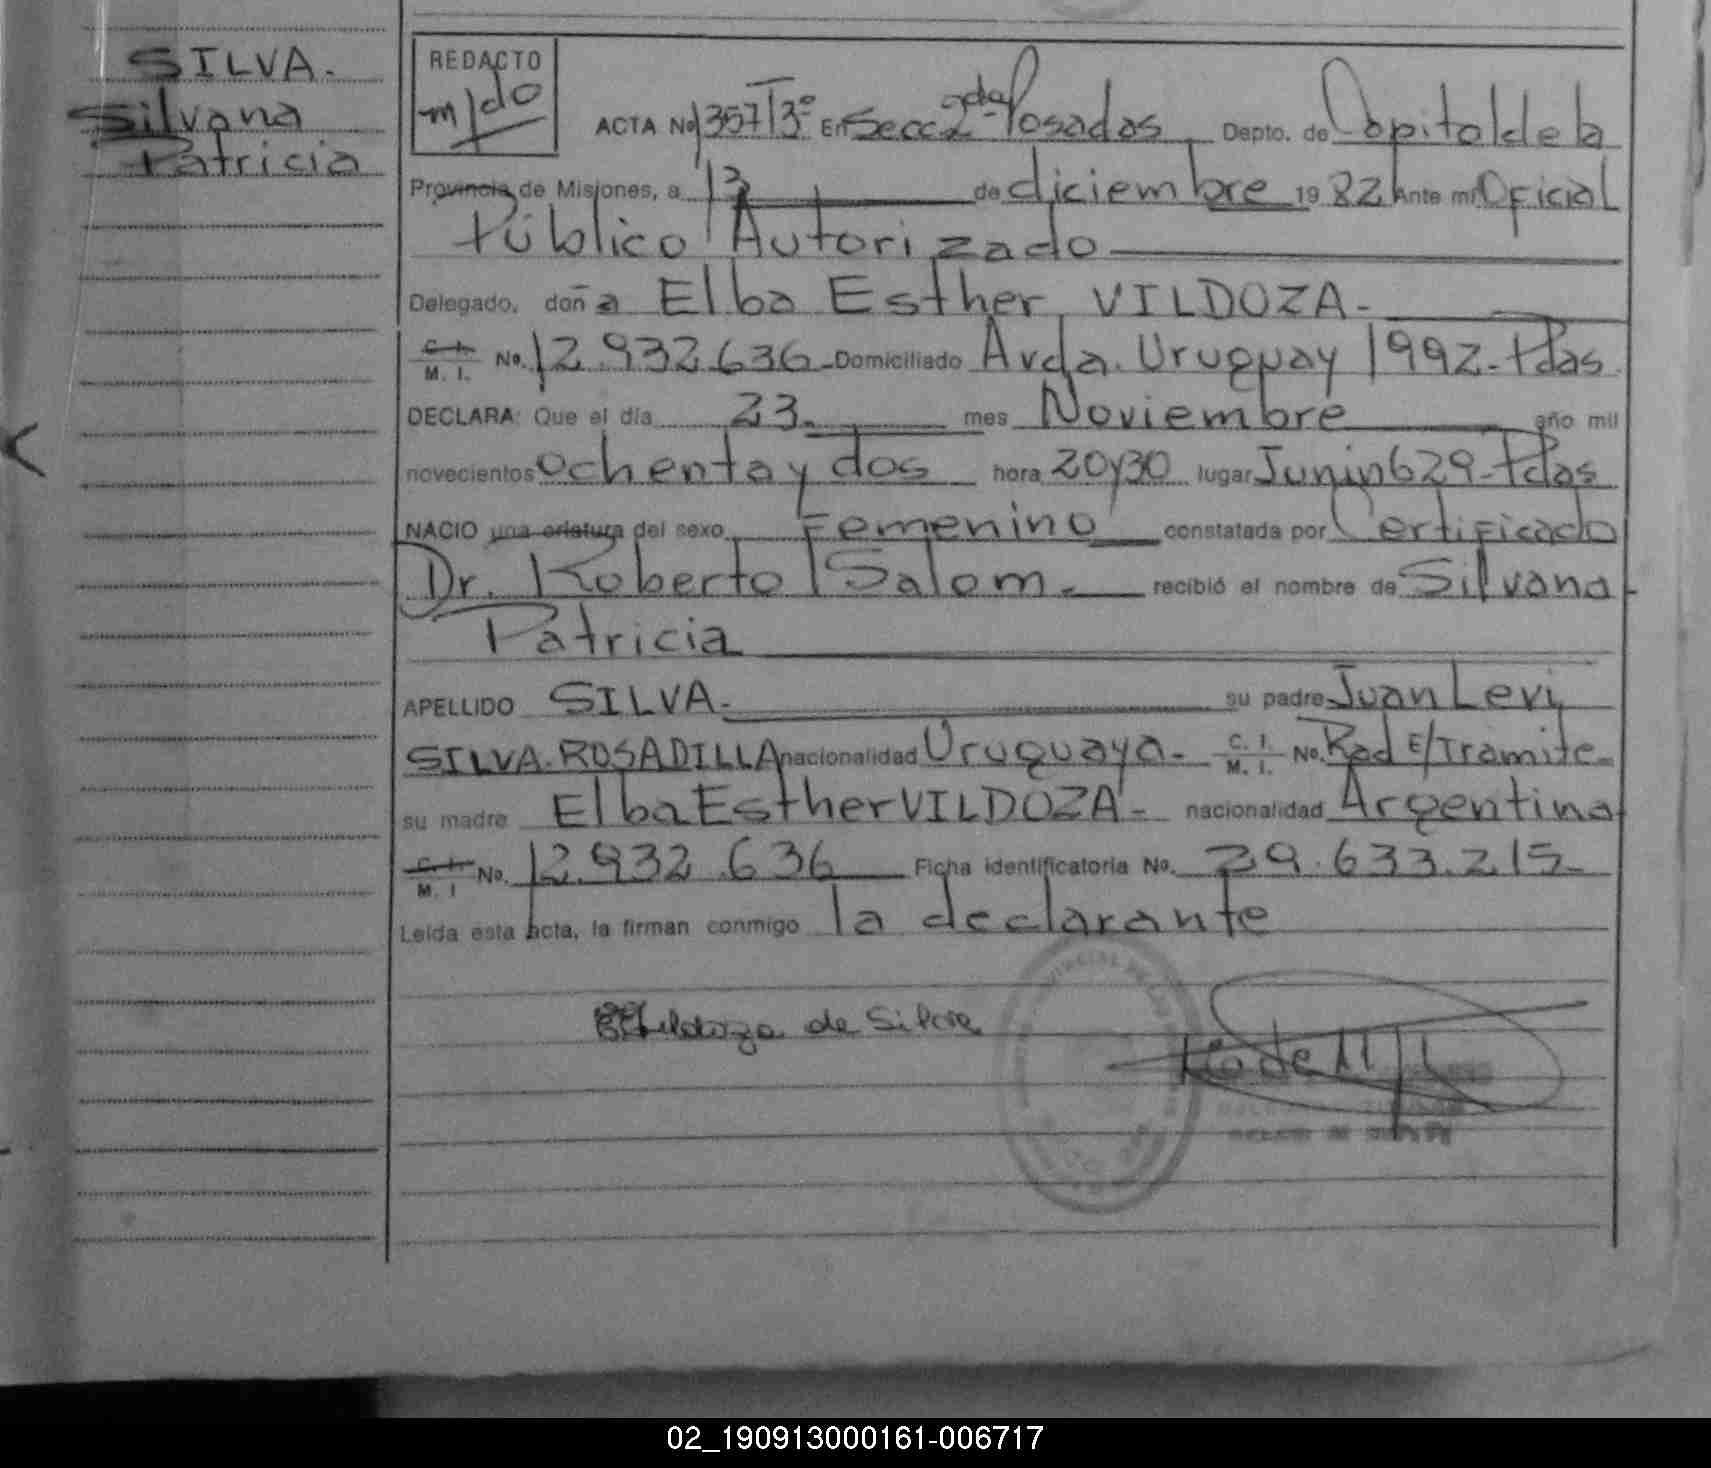 SILVA.
Silvana
Patricia
REDACTO
m/do
ACTA No 1357 T 3º En Secc 2da Posadas Depto. de Capital de la
Provincia de Misiones, a 13 de diciembre 1982 Ante mi Oficial
Público Autorizado
Delegado, doña Elba Esther VILDOZA.-
C. I. M. I. No. 12.932.636 - Domiciliado Avda. Uruguay 1992 - Pdas
DECLARA: Que el día 23. mes Noviembre año mil
novecientos ochenta y dos hora 20y30 lugar Junin 629 - Pdas
NACIO una criatura del sexo Femenino constatada por Certificado
Dr. Roberto Salom. recibió el nombre de Silvana
Patricia
APELLIDO SILVA. su padre Juan Levi
SILVA. ROSADILLA nacionalidad Uruguaya - C. I. M. I. No. Rad E/Tramite
su madre Elba Esther VILDOZA - nacionalidad Argentina
C. I. M. I No. 12.932.636 Ficha identificatoria No. 29.633.215
Leída esta acta, la firman conmigo la declarante
Vildoza de Silva
02_190913000161-006717